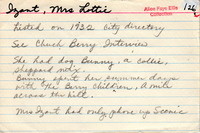 Izant, Mrs Lottie
Allen Faye Ellis
Collection
126
Listed on 1932 city directory
See Chuck Berry Interview
She had dog Bunny, a collie,
sheppard mix.
Bunny spent her summer days
with the Berry Children, ½ mile
across the hill.
Mrs Izant had only phone up Scenic